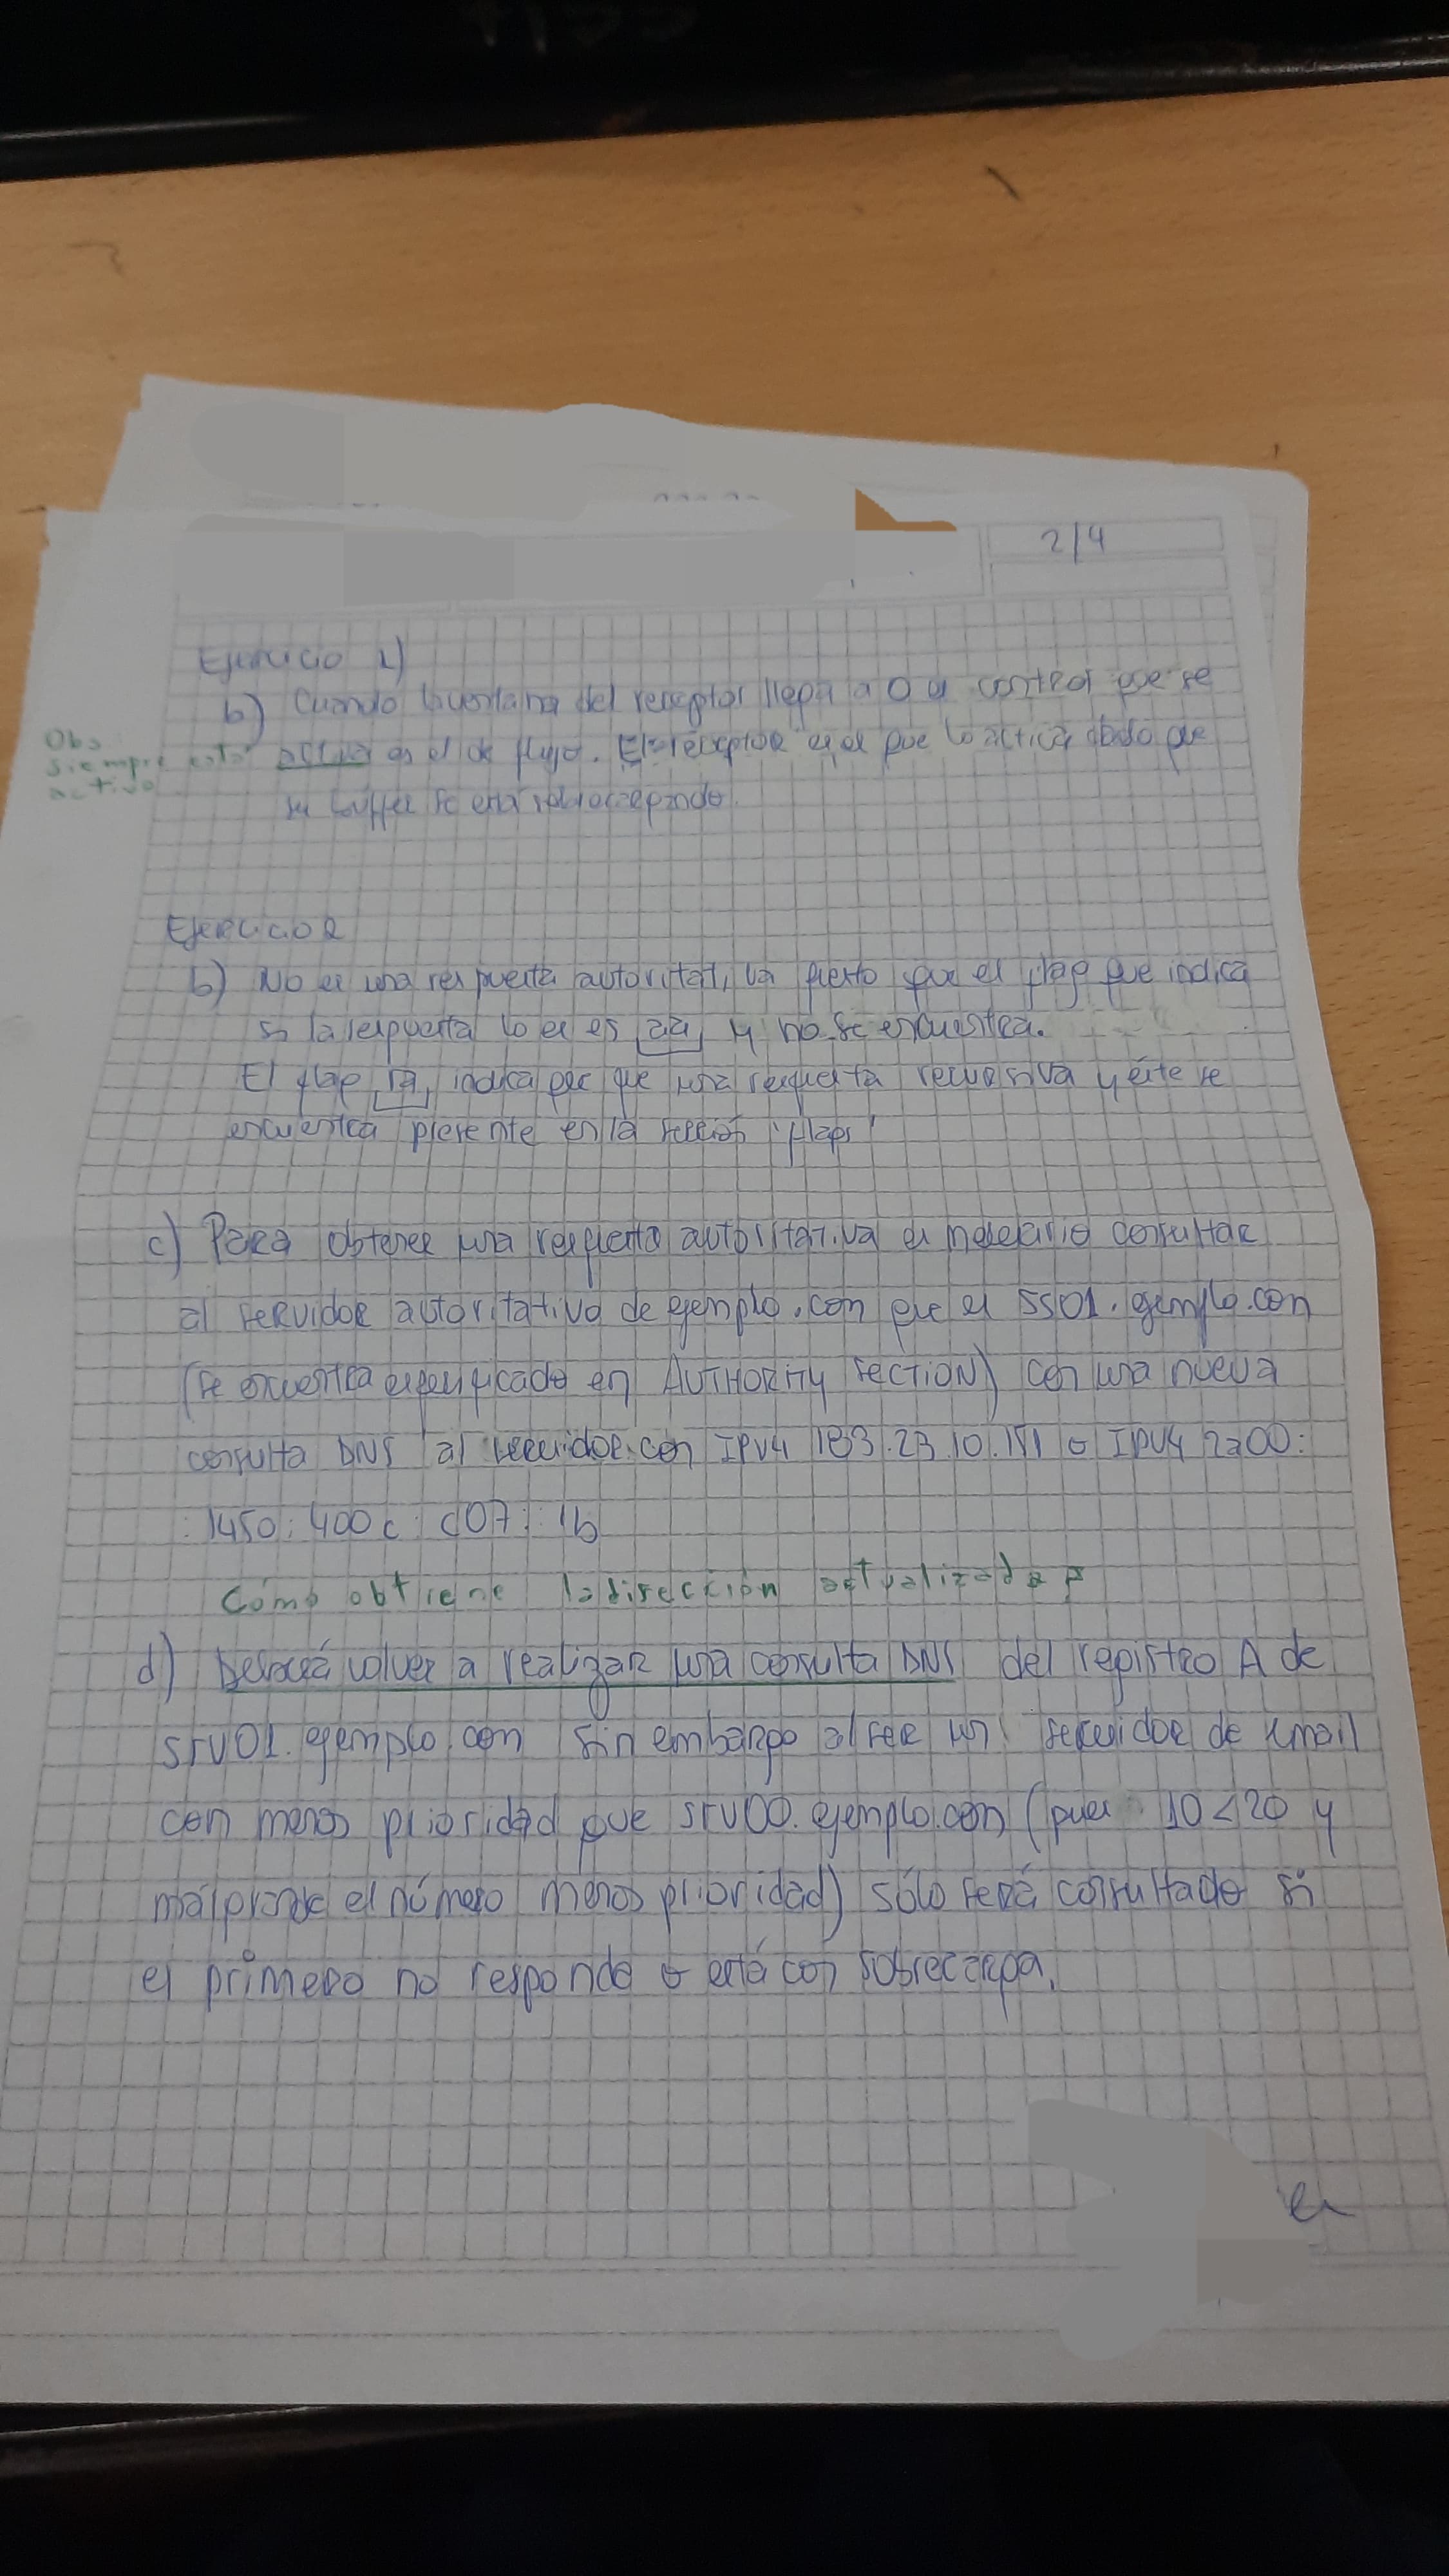 2/4
Ejercicio 1)
b) Cuando la ventana del receptor llega a 0 el control que se
Obs
siempre está
activo
activa es el de flujo. El receptor es el que lo activa dado que
su buffer se está sobrecargando.
Ejercicio 2
b) No es una respuesta autoritativa puesto que el flag que indica
si la respuesta lo es es aa y no se encuentra.
El flag ra indica que una respuesta recursiva y éste se
encuentra presente en la sección 'flags'
c) Para obtener una respuesta autoritativa es necesario consultar
al servidor autoritativo de ejemplo.com que es ss01.ejemplo.com
(se encuentra especificado en AUTHORITY SECTION) con una nueva
consulta DNS al servidor con IPv4 183.23.10.151 o IPv4 2a00:
:1450:400c:c07::1b
Cómo obtiene la dirección actualizada?
d) Deberá volver a realizar una consulta DNS del registro A de
srv01.ejemplo.com sin embargo al ser un servidor de email
con menos prioridad que srv00.ejemplo.com (pues 10<20 y
más grande el número menos prioridad) sólo será consultado si
el primero no responde o está con sobrecarga.